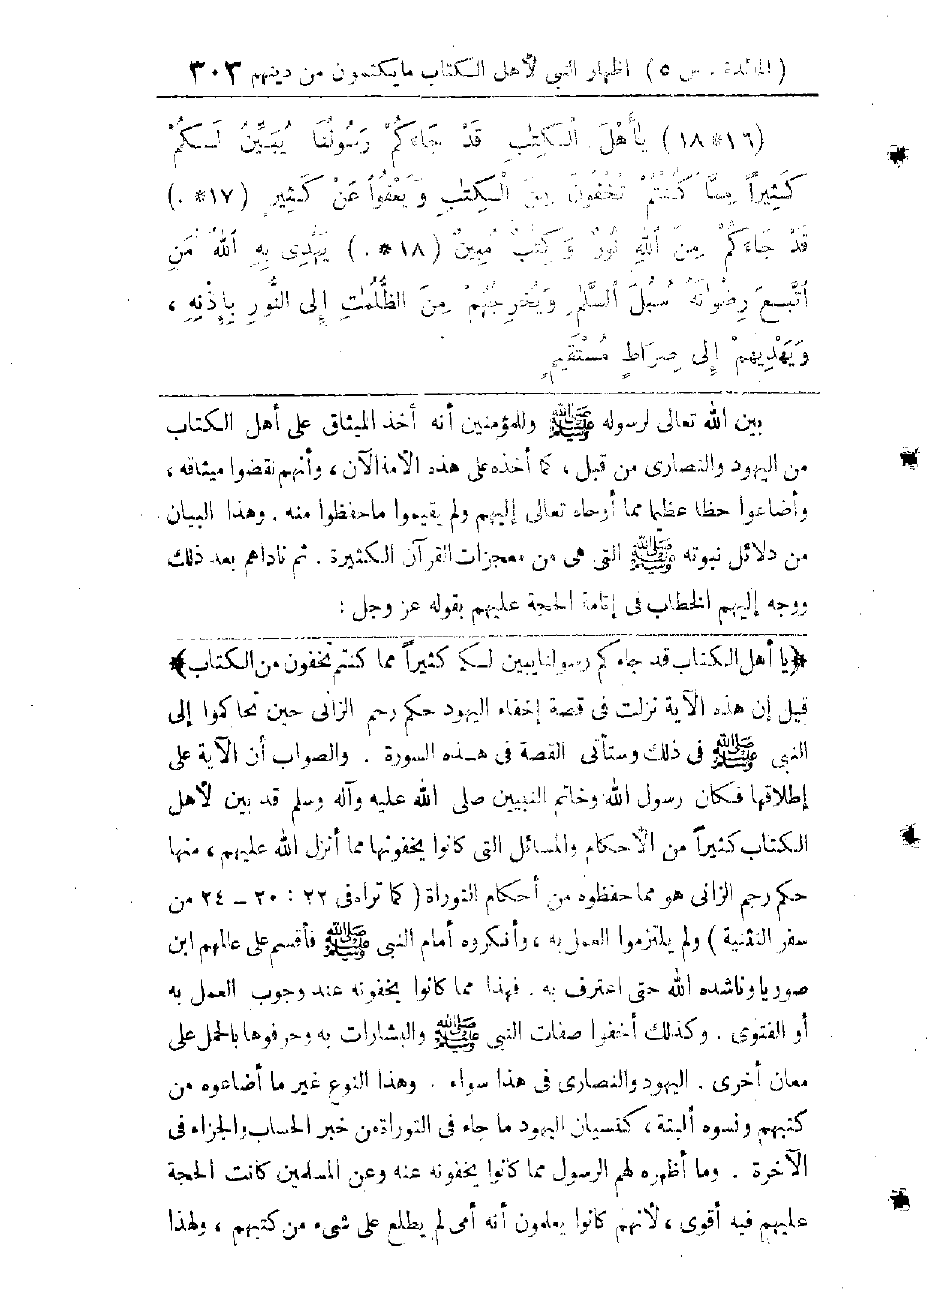 ( المائدة . س ٥ ) اظهار النبي لأهل الكتاب ما يكتمون من دينهم ٣٠٣
(١٦ * ١٨) يٰأَهْلَ الْكِتٰبِ قَدْ جَاءَكُمْ رَسُولُنَا يُبَيِّنُ لَكُمْ
كَثِيراً مِمَّا كُنْتُمْ تُخْفُونَ مِنَ الْكِتٰبِ وَيَعْفُوا عَنْ كَثِيرٍ (١٧ * .)
قَدْ جَاءَكُمْ مِنَ اللهِ نُورٌ وَكِتٰبٌ مُبِينٌ (١٨ * .) يَهْدِي بِهِ اللهُ مَنِ
اتَّبَعَ رِضْوانَهُ سُبُلَ السَّلٰمِ وَيُخْرِجُهُمْ مِنَ الظُّلُمٰتِ إِلى النُّورِ بِإِذْنِهِ ،
وَيَهْدِيهِمْ إِلى صِرَاطٍ مُسْتَقِيمٍ
بين الله تعالى لرسوله ﷺ وللمؤمنين أنه أخذ الميثاق على أهل الكتاب
من اليهود والنصارى من قبل ، كما أخذه على هذه الأمة الآن ، وأنهم نقضوا ميثاقه ،
وأضاعوا حظا عظيما مما أوحاه تعالى إليهم ولم يقيموا ما حفظوا منه . وهذا البيان
من دلائل نبوته ﷺ التى هى من معجزات القرآن الكثيرة . ثم ناداهم بعد ذلك
ووجه إليهم الخطاب فى إقامة الحجة عليهم بقوله عز وجل :
﴿ يا أهل الكتاب قد جاءكم رسولنا يبين لكم كثيراً مما كنتم تخفون من الكتاب ﴾
قيل إن هذه الآية نزلت فى قصة إخفاء اليهود حكم رجم الزانى حين تحاكموا إلى
النبى ﷺ فى ذلك وستأتى القصة فى هذه السورة . والصواب أن الآية على
إطلاقها فكان رسول الله وخاتم النبيين صلى الله عليه وآله وسلم قد بين لأهل
الكتاب كثيراً من الأحكام والمسائل التى كانوا يخفونها مما أنزل الله عليهم ، منها
حكم رجم الزانى هو مما حفظوه من أحكام التوراة ( كما تراه فى ٢٢ : ٢٠ – ٢٤ من
سفر التثنية ) ولم يلتزموا العمل به ، وأنكروه أمام النبى ﷺ فأقسم على عالمهم ابن
صوريا وناشده الله حتى اعترف به . فهذا مما كانوا يخفونه عند وجوب العمل به
أو الفتوى . وكذلك أخفوا صفات النبى ﷺ والبشارات به وحرفوها بالحمل على
معان أخرى . اليهود والنصارى فى هذا سواء . وهذا النوع غير ما أضاعوه من
كتبهم ونسوه ألبتة ، كنسيان اليهود ما جاء فى التوراة من خبر الحساب والجزاء فى
الآخرة . وما أظهره لهم الرسول مما كانوا يخفونه عنه وعن المسلمين كانت الحجة
عليهم فيه أقوى ، لأنهم كانوا يعلمون أنه أمى لم يطلع على شىء من كتبهم ، ولهذا